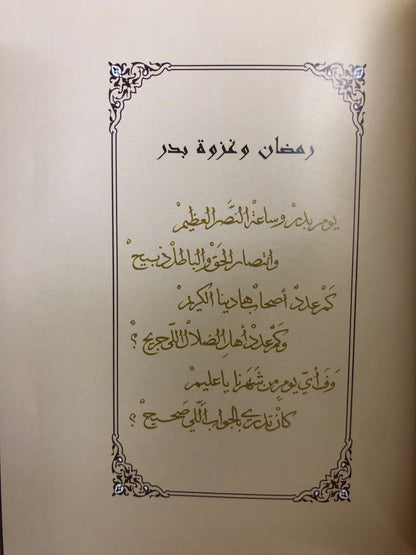 رمضان وغزوة بدر
يومْ بدرْ وساعةْ النَّصر العظيمْ
وانتصار الحَقْ والباطلْ ذبيحْ
كَمْ عددْ أصحابْ هادينا الكريمْ
وكمْ عددْ أهلِ الضلالْ اللّي جريحْ ؟
وَفْ أيّ يومٍ مِن شَهَرنا يا عليمْ
كانْ تدري بالجواب اللّي صَحيحْ ؟